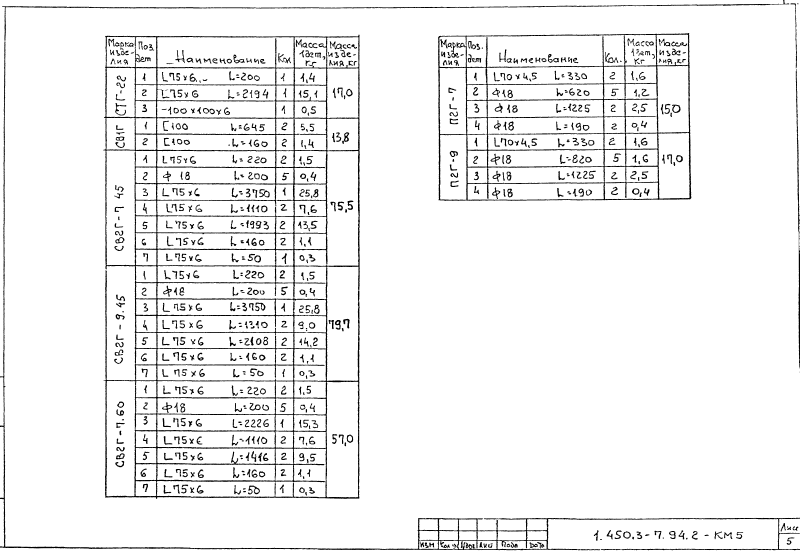 Марка изде-лия Поз. дет Наименование Кол. Масса 1дет, кг Масса изде-лия, кг
СТГ-22 1 L75х6 L=200 1 1,4 17,0
2 L75х6 L=2194 1 15,1
3 -100х100х6 1 0,5
СВ1Г 1 [100 L=645 2 5,5 13,8
2 [100 L=160 2 1,4
СВ2Г-7.45 1 L75х6 L=220 2 1,5 75,5
2 Ф 18 L=200 5 0,4
3 L75х6 L=3750 1 25,8
4 L75х6 L=1110 2 7,6
5 L75х6 L=1993 2 13,5
6 L75х6 L=160 2 1,1
7 L75х6 L=50 1 0,3
СВ2Г-9.45 1 L75х6 L=220 2 1,5 79,7
2 Ф18 L=200 5 0,4
3 L75х6 L=3750 1 25,8
4 L75х6 L=1310 2 9,0
5 L75х6 L=2108 2 14,2
6 L75х6 L=160 2 1,1
7 L75х6 L=50 1 0,3
СВ2Г-7.60 1 L75х6 L=220 2 1,5 57,0
2 Ф18 L=200 5 0,4
3 L75х6 L=2226 1 15,3
4 L75х6 L=1110 2 7,6
5 L75х6 L=1416 2 9,5
6 L75х6 L=160 2 1,1
7 L75х6 L=50 1 0,3
Марка изде-лия Поз. дет Наименование Кол. Масса 1дет, кг Масса изде-лия, кг
П2Г-7 1 L70х4,5 L=330 2 1,6 15,0
2 Ф18 L=620 5 1,2
3 Ф18 L=1225 2 2,5
4 Ф18 L=190 2 0,4
П2Г-9 1 L70х4,5 L=330 2 1,6 17,0
2 Ф18 L=820 5 1,6
3 Ф18 L=1225 2 2,5
4 Ф18 L=190 2 0,4
Изм Кол.уч Подп Дата
1.450.3-7.94.2-КМ5
Лист
5